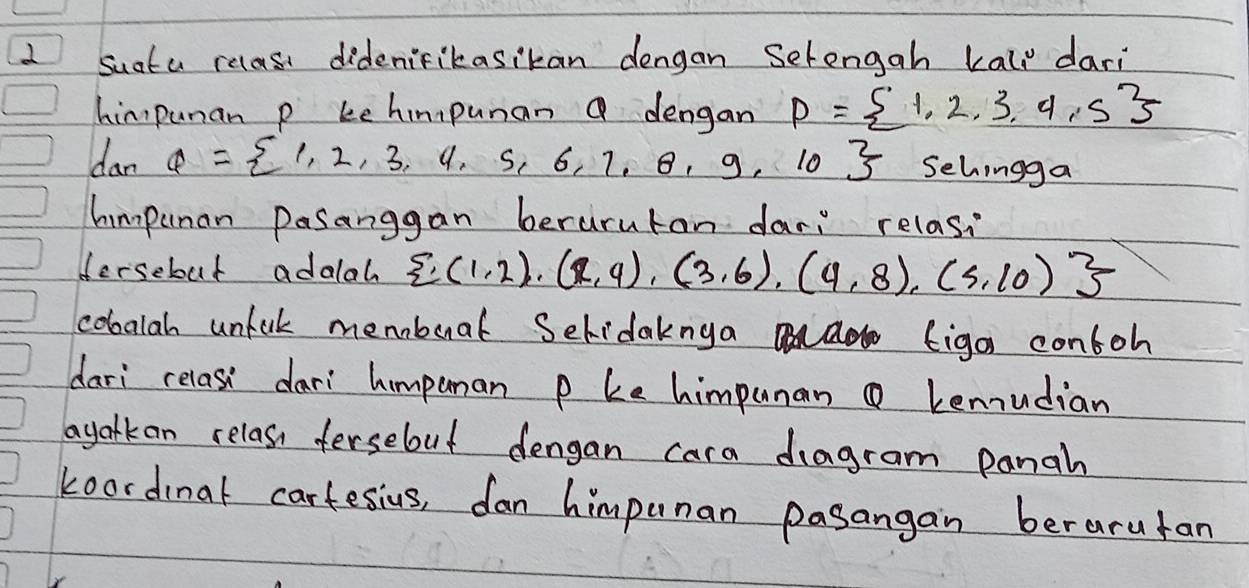 2 Suatu relasi didenifikasikan dengan setengah kali dari
himpunan P ke himpunan Q dengan P = { 1, 2, 3, 4, 5 }
dan Q = { 1, 2, 3, 4, 5, 6, 7, 8, 9, 10 } sehingga
himpunan Pasanggan berurutan dari relasi
tersebut adalah {(1,2), (2,4), (3,6), (4,8), (5,10) }
cobalah untuk membuat Setidaknya tiga contoh
dari relasi dari himpunan P ke himpunan Q kemudian
ayatkan relasi tersebut dengan cara diagram Panah
koordinat cartesius, dan himpunan pasangan berurutan